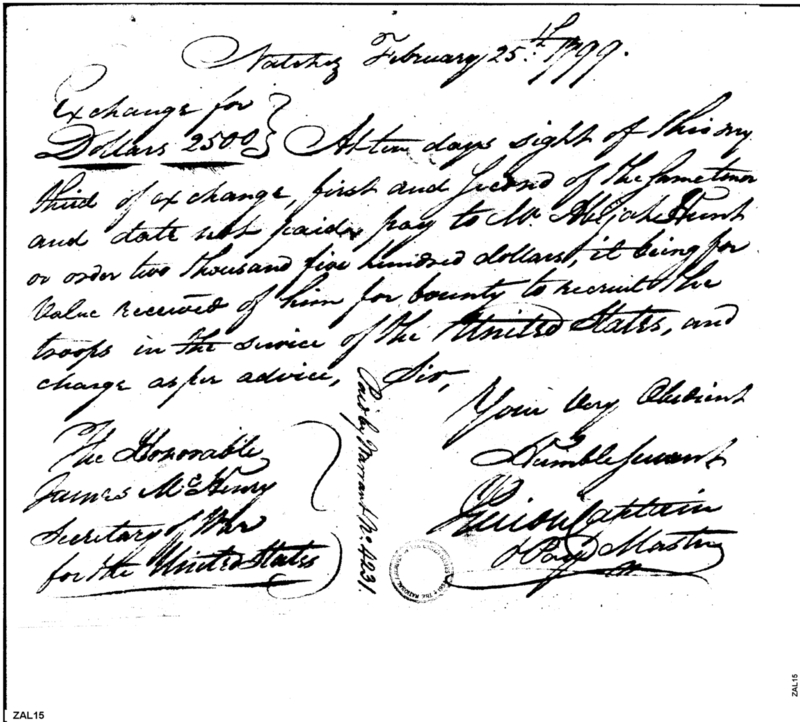 Natchez February 25th. 1799.
Exchange for
Dollars 2500 } At ten days sight of this my
third of exchange, first and second of the same tenor
and date not paid, pay to Mr. Abijah Hunt
or order two thousand five hundred dollars, it being for
Value received of him for bounty to recruit the
troops in the service of the United States, and
charge as per advice, Sir,
Your Very Obedient
Humble Servant
Guion Captain
& Pay Master
The Honorable
James McHenry
Secretary of War
for the United States
Paid by Warrant No. 4231.
ZAL15
ZAL15